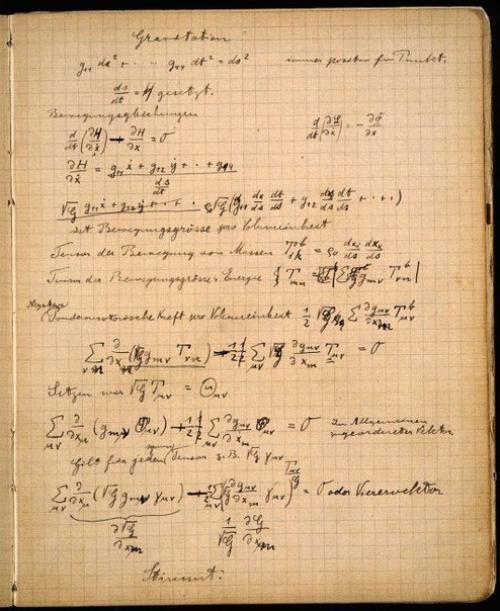 Gravitation
g₁₁ dx² + · · · g₄₄ dt² = ds² immer positiv für Punkt.
ds/dt = H gesetzt.
Bewegungsgleichungen
d/dt (∂H/∂ẋ) − ∂H/∂x = 0 d/dt (∂/∂ẋ) = − ∂Φ/∂x
∂H/∂ẋ = (g₁₁ ẋ + g₁₂ ẏ + · · + g₁₄) / (ds/dt)
√G g₁₁ẋ + g₁₂ẏ + · · · √G (g₁₁ dx/ds dt/ds + g₁₂ dy/ds dt/ds + · · )
ist Bewegungsgrösse pro Volumeinheit
Tensor der Bewegung von Massen T^b_ik = ρ₀ dx_i/ds dx_k/ds
Tensor der Bewegungsgrösse u. Energie T_mn = Σ √G g_mν T^b_νn
Negative Ponderomotorische Kraft pro Volumeinheit 1/2 √G Σ ∂g_μν/∂x_m T^b_μν
Σ_νn ∂/∂x_n (√G g_mν T_νn) − 1/2 Σ_μν √G ∂g_μν/∂x_m T_μν = 0
Setzen wir √G T_μν = Θ_μν
Σ_μν ∂/∂x_μ (g_mν Θ_μν) − 1/2 Σ_μν ∂g_μν/∂x_m Θ_μν = 0 Im Allgemeinen zugeordneter Vektor
Gilt für jeden Tensor z. B. √G γ_μν
Σ_μν ∂/∂x_μ (√G g_mν γ_μν) − 1/2 Σ √G ∂g_μν/∂x_m γ_μν = 0 oder Vierervektor
∂√G/∂x_m 1/√G ∂G/∂x_m
Stimmt.